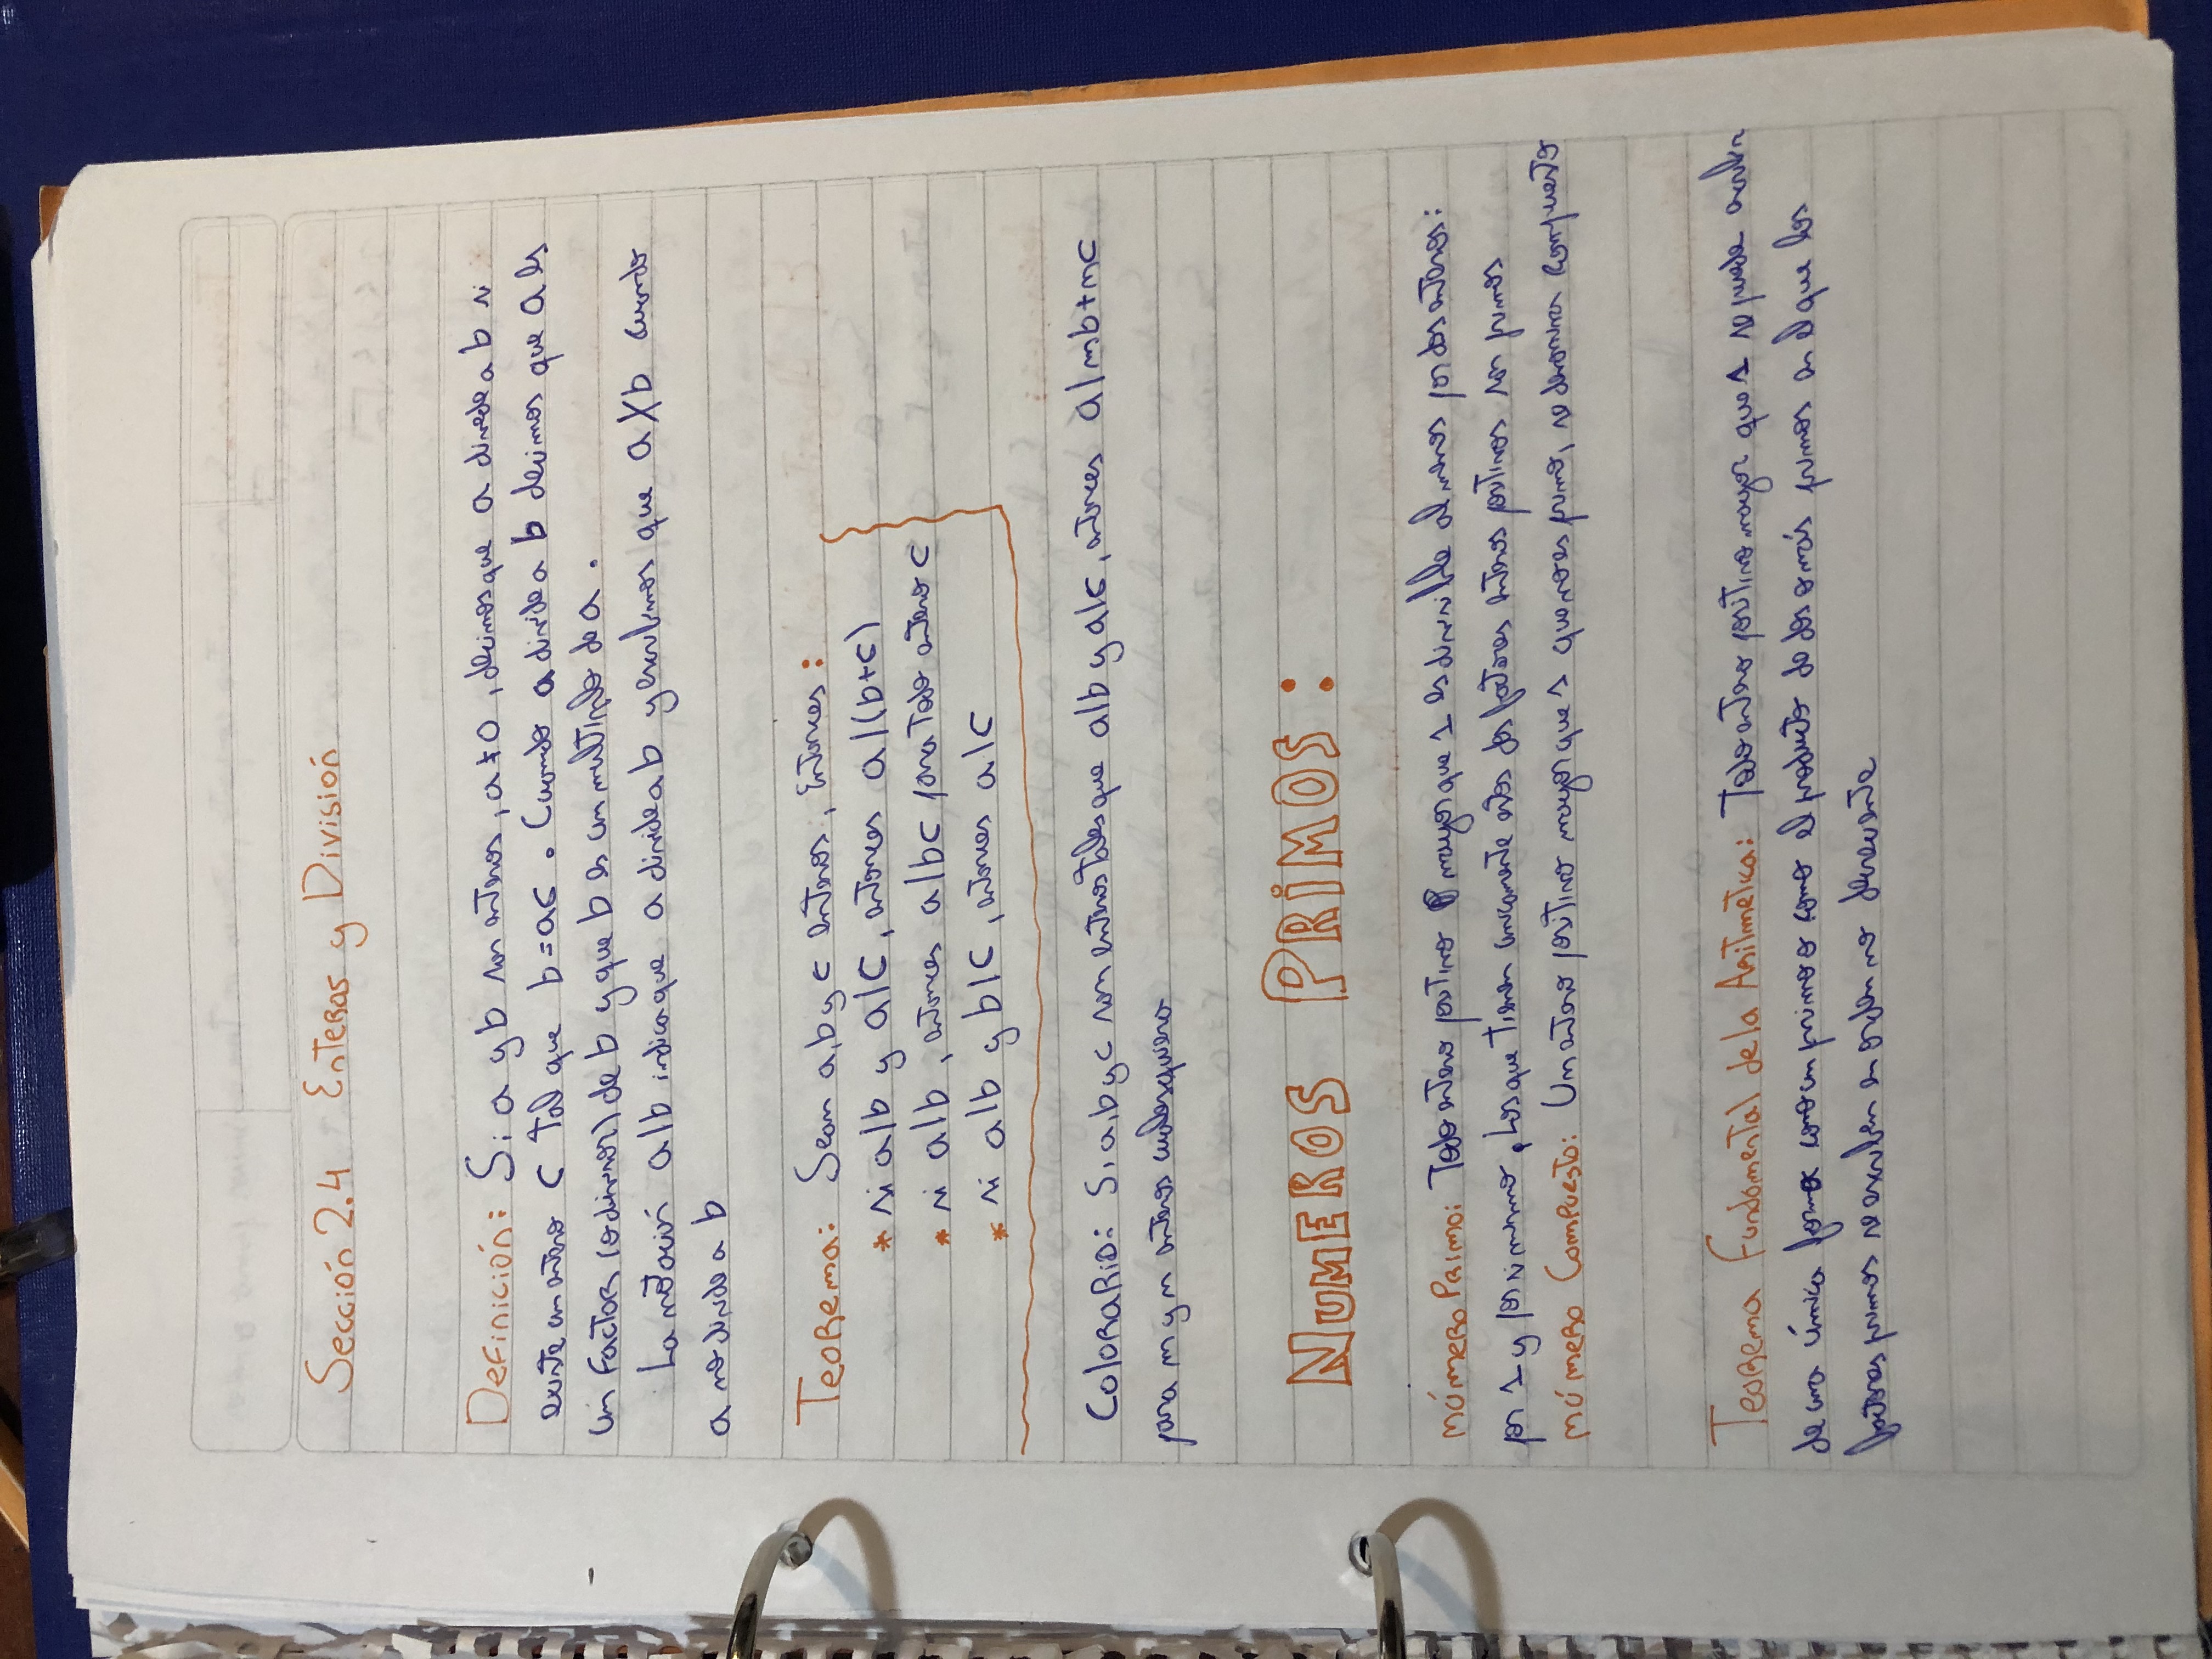 Sección 2.4 Enteros y División
Definición: Si a y b son enteros, a ≠ 0, decimos que a divide a b si
existe un entero c tal que b=ac. Cuando a divide a b decimos que a es
un factor (o divisor) de b y que b es un multiplo de a.
La notación a|b indica que a divide a b y escribimos que a∤b cuando
a no divide a b
Teorema: Sean a, b y c enteros, Entonces:
* si a|b y a|c, entonces a|(b+c)
* si a|b, entonces a|bc para todo entero c
* si a|b y b|c, entonces a|c
Colorario: Si a, b y c son enteros tales que a|b y a|c, entonces a|mb+nc
para m y n enteros cualesquiera
NUMEROS PRIMOS:
número Primo: Todo entero positivo mayor que 1 es divisible al menos por dos enteros:
por 1 y por si mismo. Los que tienen unicamente estos dos factores enteros positivos son primos
número Compuesto: Un entero positivo mayor que 1 que no es primo, se denomina compuesto
Teorema Fundamental de la Aritmetica: Todo entero positivo mayor que 1 se puede escribir
de una única forma como un primo o como el producto de dos o más primos en el que los
factores primos se escriben en orden no decreciente